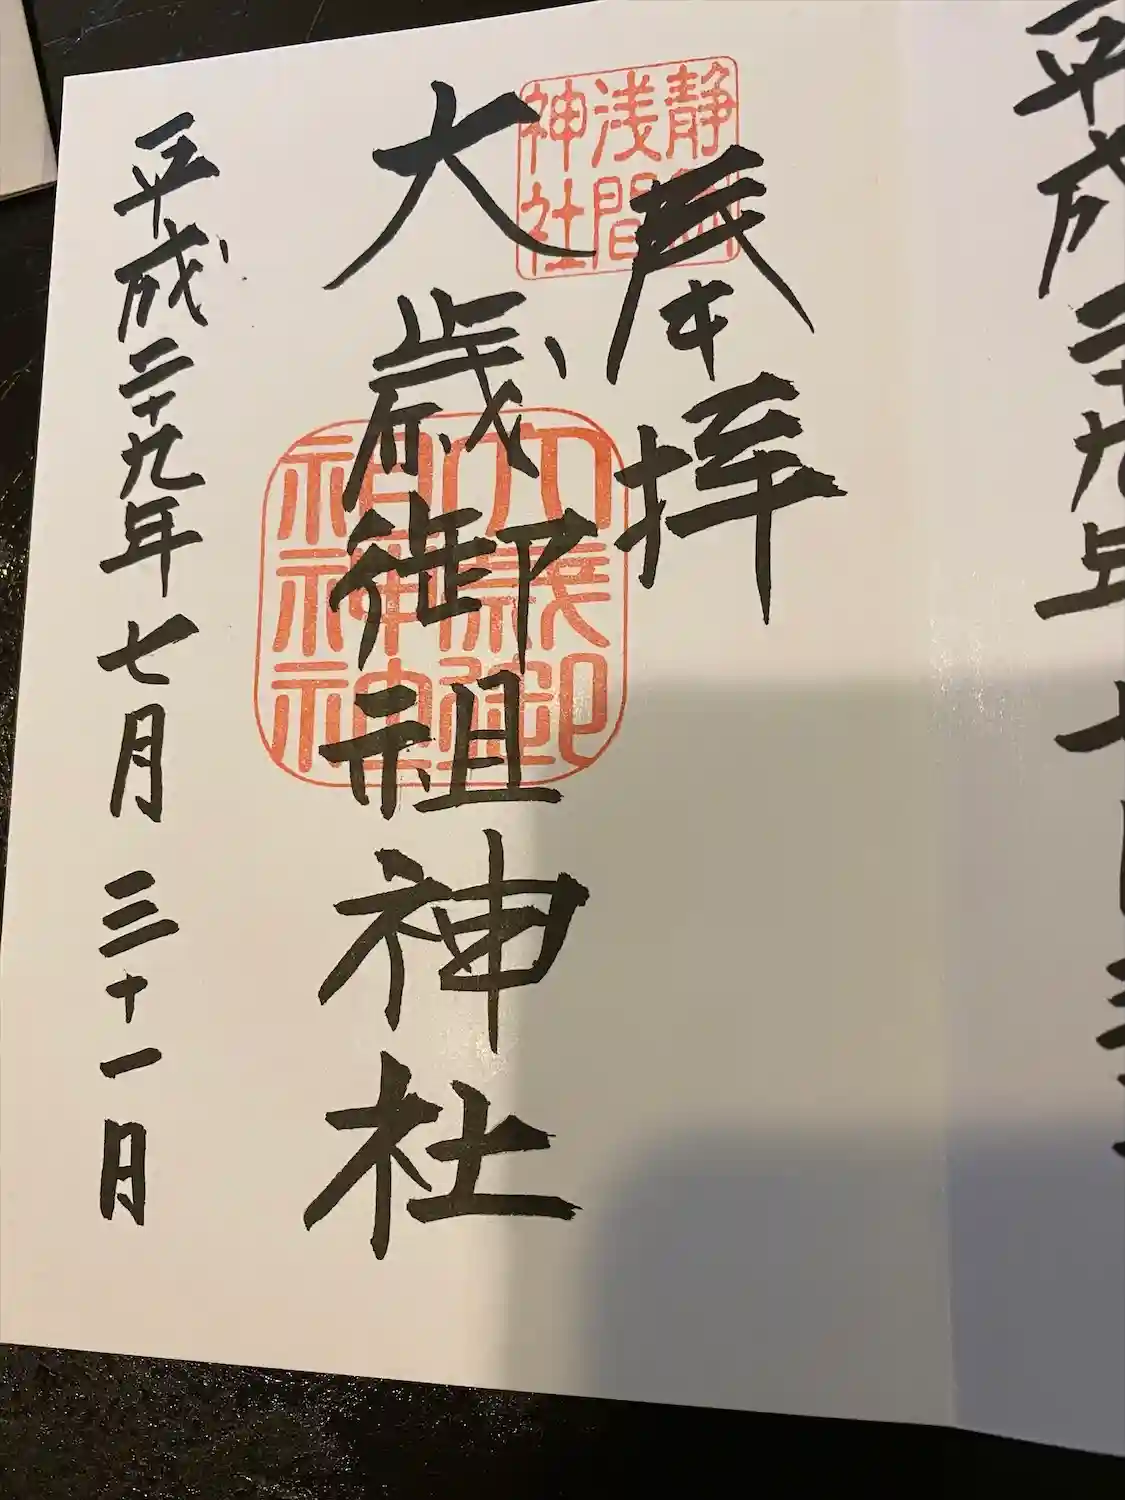 平成二十九年七月三
奉拝
静岡
浅間
神社
大歳御祖神社
大歳御
祖神
平成二十九年七月三十一日